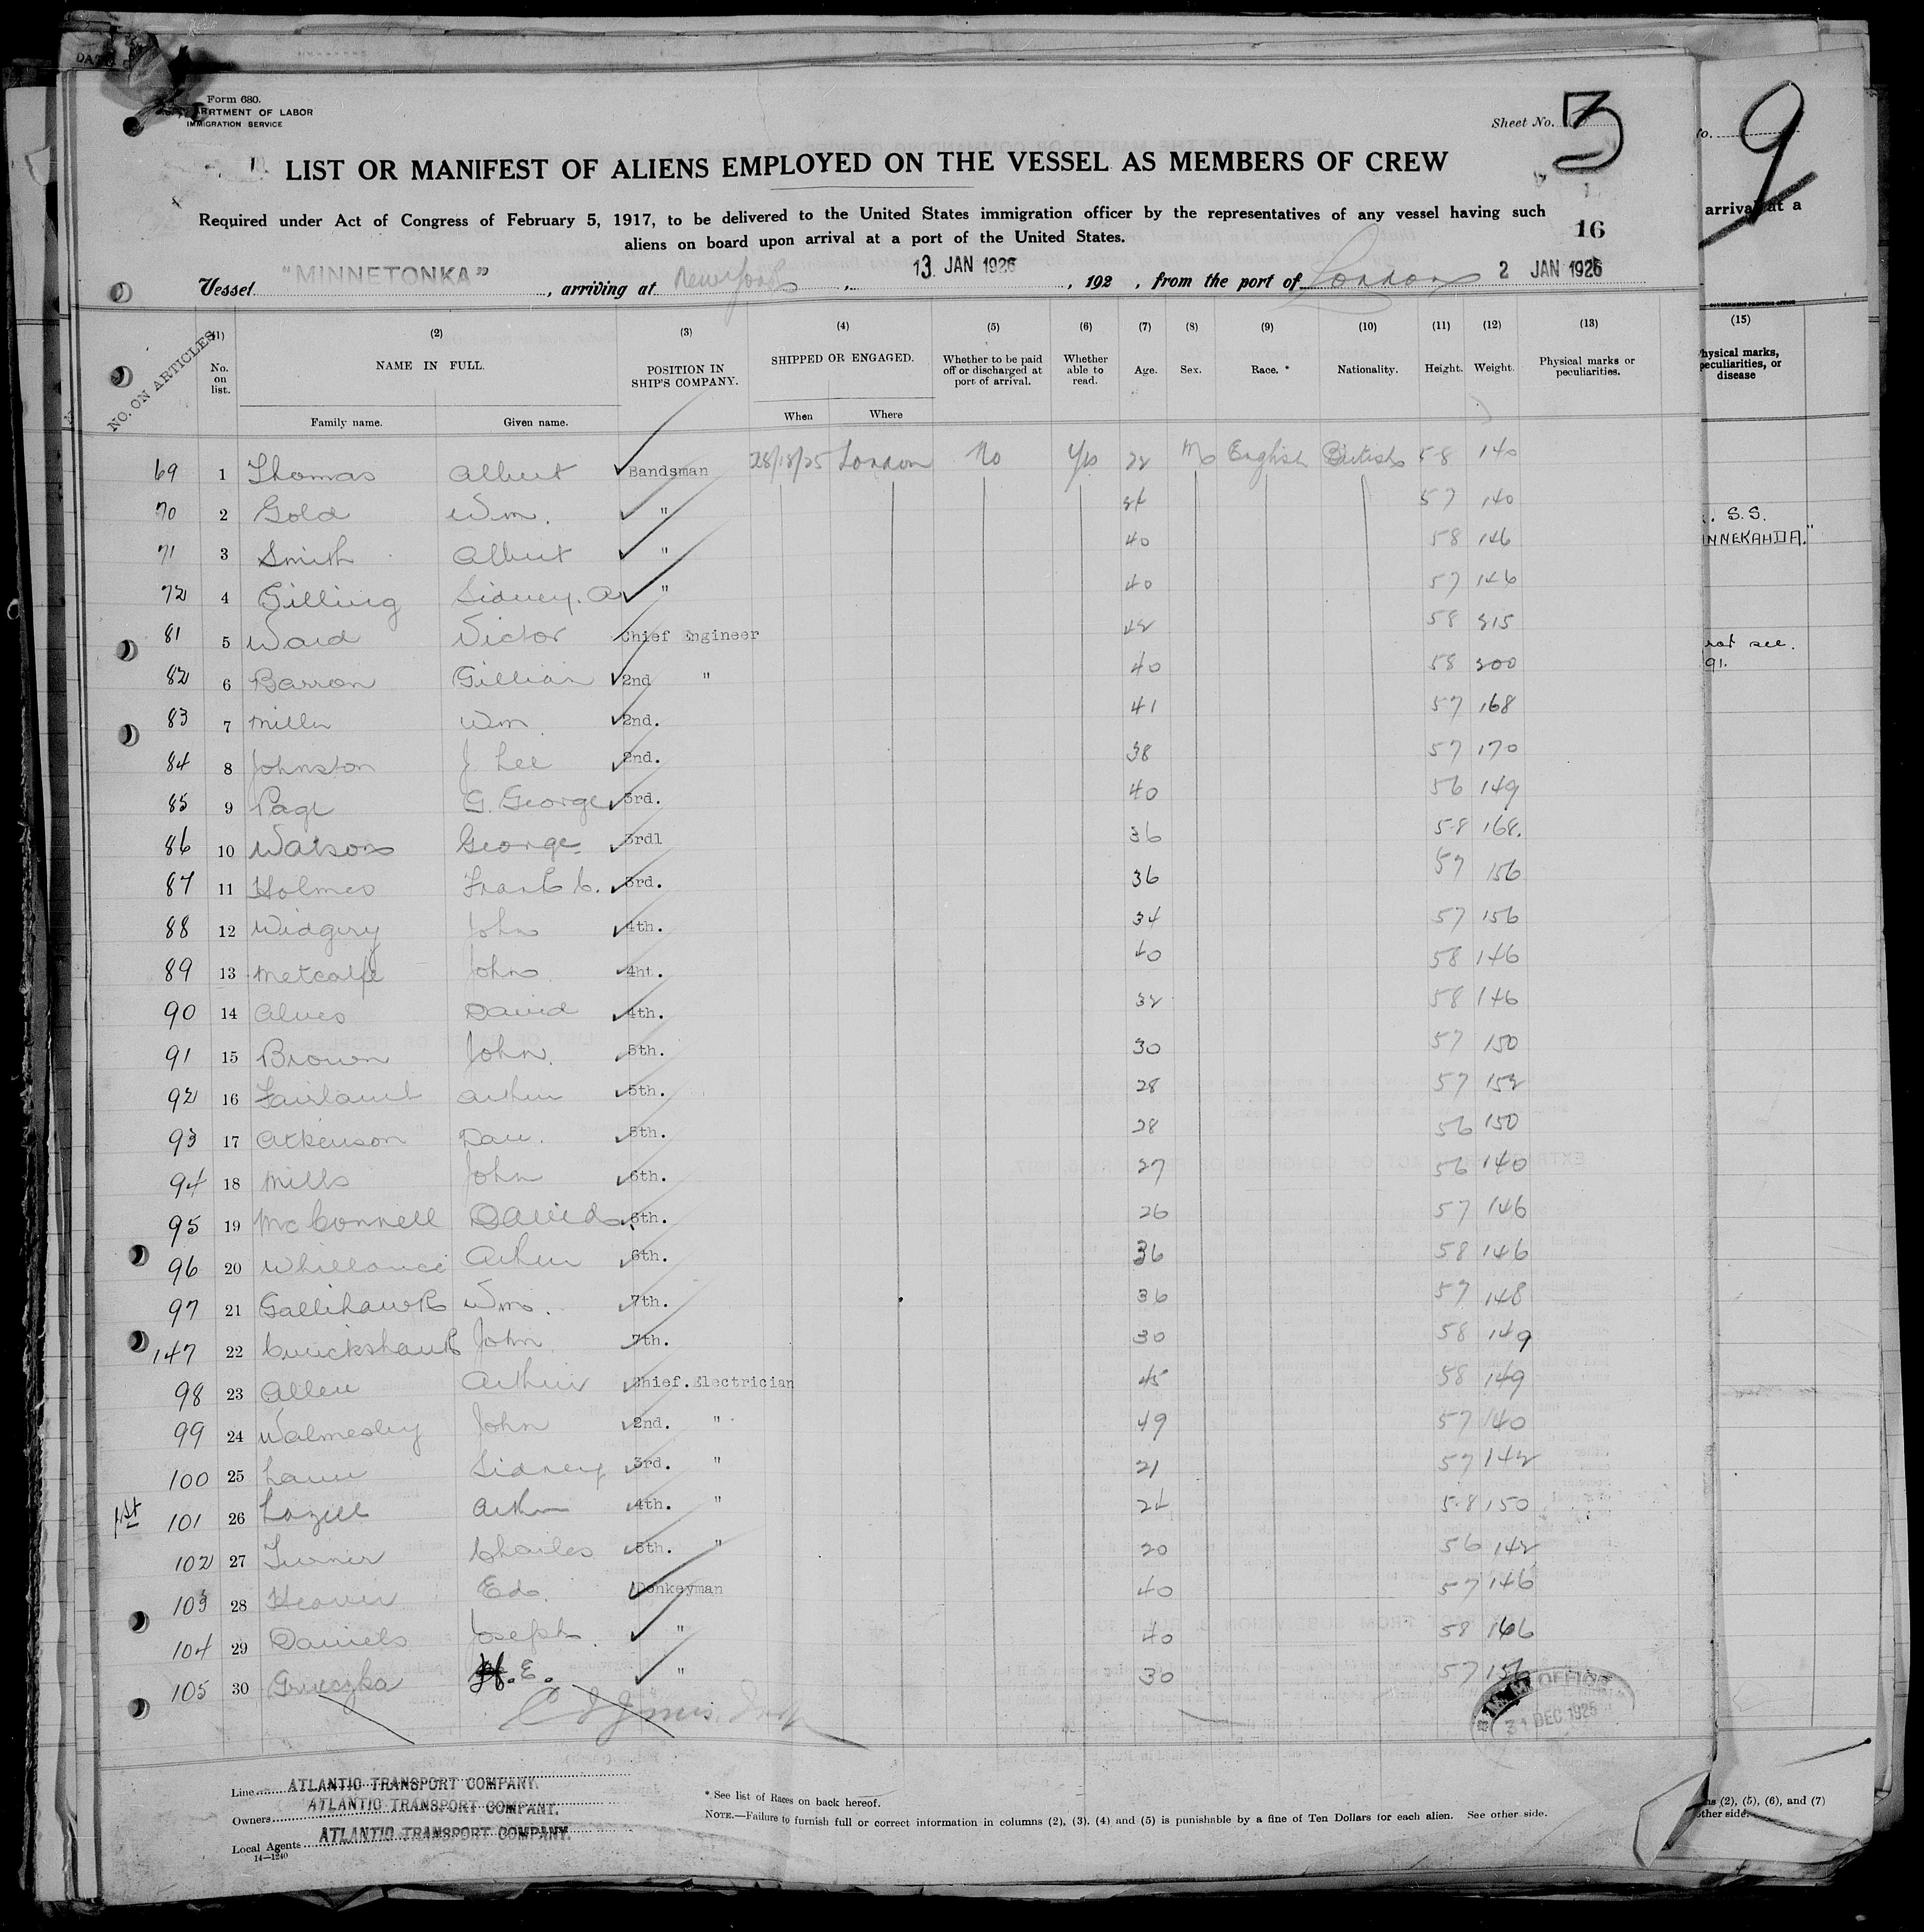 Form 680.
DEPARTMENT OF LABOR
IMMIGRATION SERVICE
Sheet No. 3
9
LIST OR MANIFEST OF ALIENS EMPLOYED ON THE VESSEL AS MEMBERS OF CREW
Required under Act of Congress of February 5, 1917, to be delivered to the United States immigration officer by the representatives of any vessel having such
aliens on board upon arrival at a port of the United States.
16
arrival at a
Vessel "MINNETONKA", arriving at New York, 13 JAN 1926, 192 , from the port of London 2 JAN 1926
(1) (2) (3) (4) (5) (6) (7) (8) (9) (10) (11) (12) (13) (15)
NO. ON ARTICLES No. on list. NAME IN FULL. POSITION IN SHIP'S COMPANY. SHIPPED OR ENGAGED. Whether to be paid off or discharged at port of arrival. Whether able to read. Age. Sex. Race. * Nationality. Height. Weight. Physical marks or peculiarities.
Family name. Given name. When Where
69 1 Thomas Albert Bandsman London No Yes 22 M English British 58 140
70 2 Gold Wm. " 57 140
71 3 Smith Albert " 40 58 146
72 4 Gilling Sidney. A " 40 57 146
81 5 Ward Victor Chief Engineer 42 58 215
82 6 Barron Gillian 2nd " 40 58 200
83 7 Miller Wm 2nd. 41 57 168
84 8 Johnston J. Lee 2nd. 38 57 170
85 9 Page G. George 3rd. 40 56 149
86 10 Watson George 3rdl 36 58 168.
87 11 Holmes Frank C. 3rd. 36 57 156
88 12 Widgery John 4th. 34 57 156
89 13 Metcalfe John 4ht. 40 58 146
90 14 Alves David 4th. 32 58 146
91 15 Brown John. 5th. 30 57 150
92 16 Arthur 5th. 28 57 152
93 17 Atkenson Dan. 5th. 28 56 150
94 18 Mills John 6th. 27 56 140
95 19 McConnell David 6th. 26 57 146
96 20 Arthur 6th. 36 58 146
97 21 Gallihawk Wm. 7th. 36 57 148
147 22 John 7th. 30 58 149
98 23 Allen Arthur Chief.Electrician 45 58 149
99 24 Walmesley John 2nd. " 49 57 140
100 25 Sidney 3rd. " 21 57 142
1st 101 26 Lazell Arthur 4th. " 24 58 150
102 27 Turner Charles 5th. " 20 56 142
103 28 Ed. Donkeyman 40 57 146
104 29 Daniels Joseph. " 40 58 166
105 30 E. " 30 57 156
31 DEC 1925
Line ATLANTIC TRANSPORT COMPANY.
Owners ATLANTIC TRANSPORT COMPANY.
Local Agents ATLANTIC TRANSPORT COMPANY.
14—1240
* See list of Races on back hereof.
NOTE.—Failure to furnish full or correct information in columns (2), (3), (4) and (5) is punishable by a fine of Ten Dollars for each alien. See other side.
(2), (5), (6), and (7)
other side.